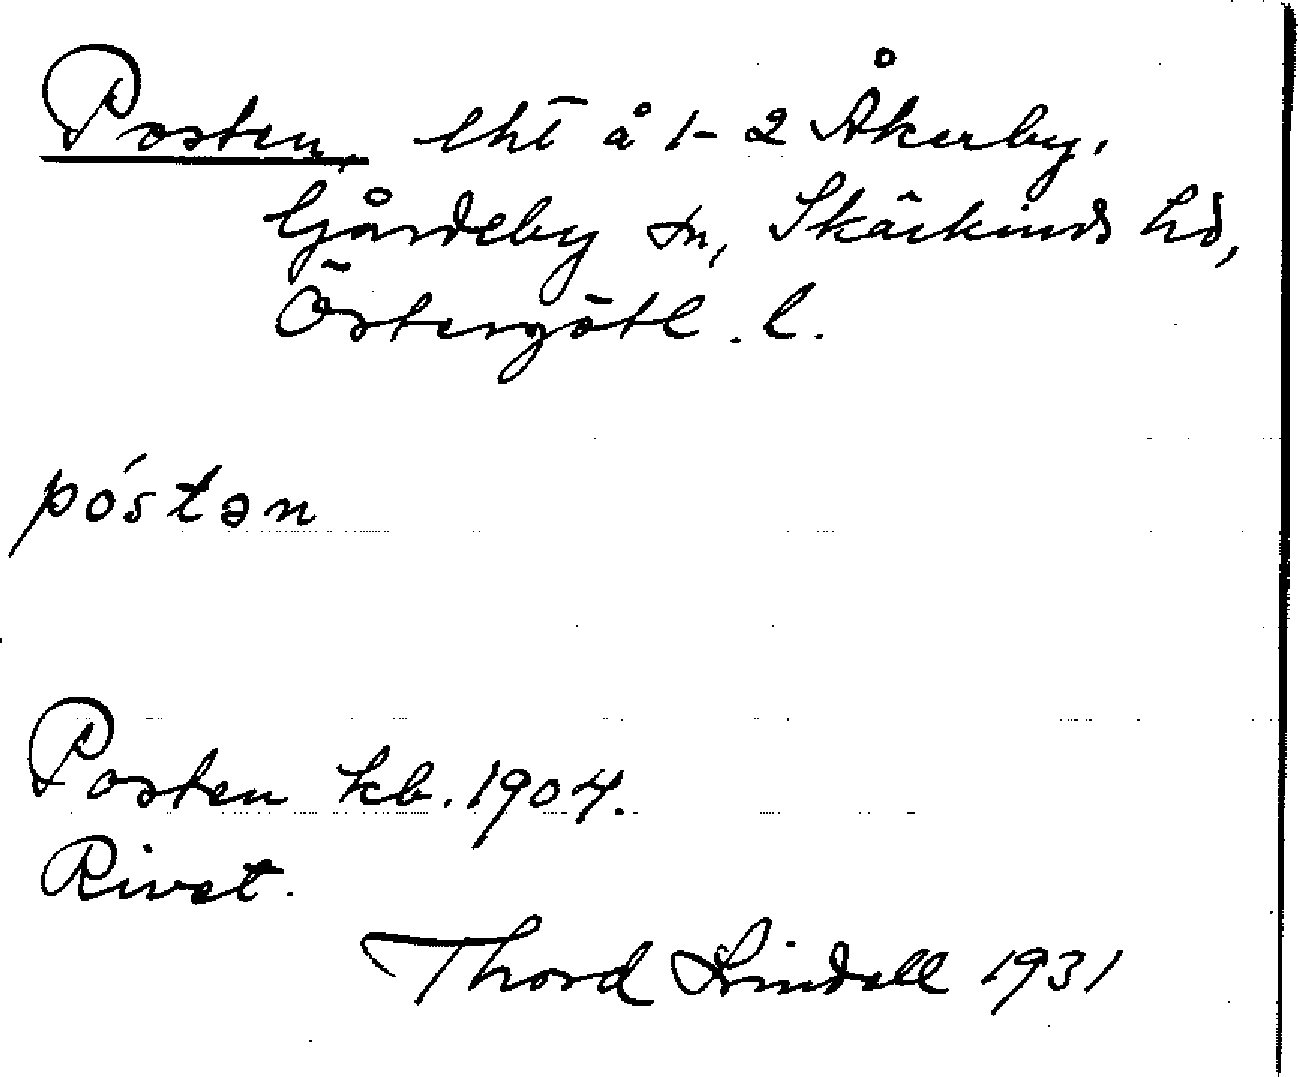 Posten, lht å 1-2 Åkerby,
Gårdeby sn, Skärkinds hd,
Östergötl. l.
pó́stən
Posten kb. 1904.
Rivet.
Thord Lindall 1931